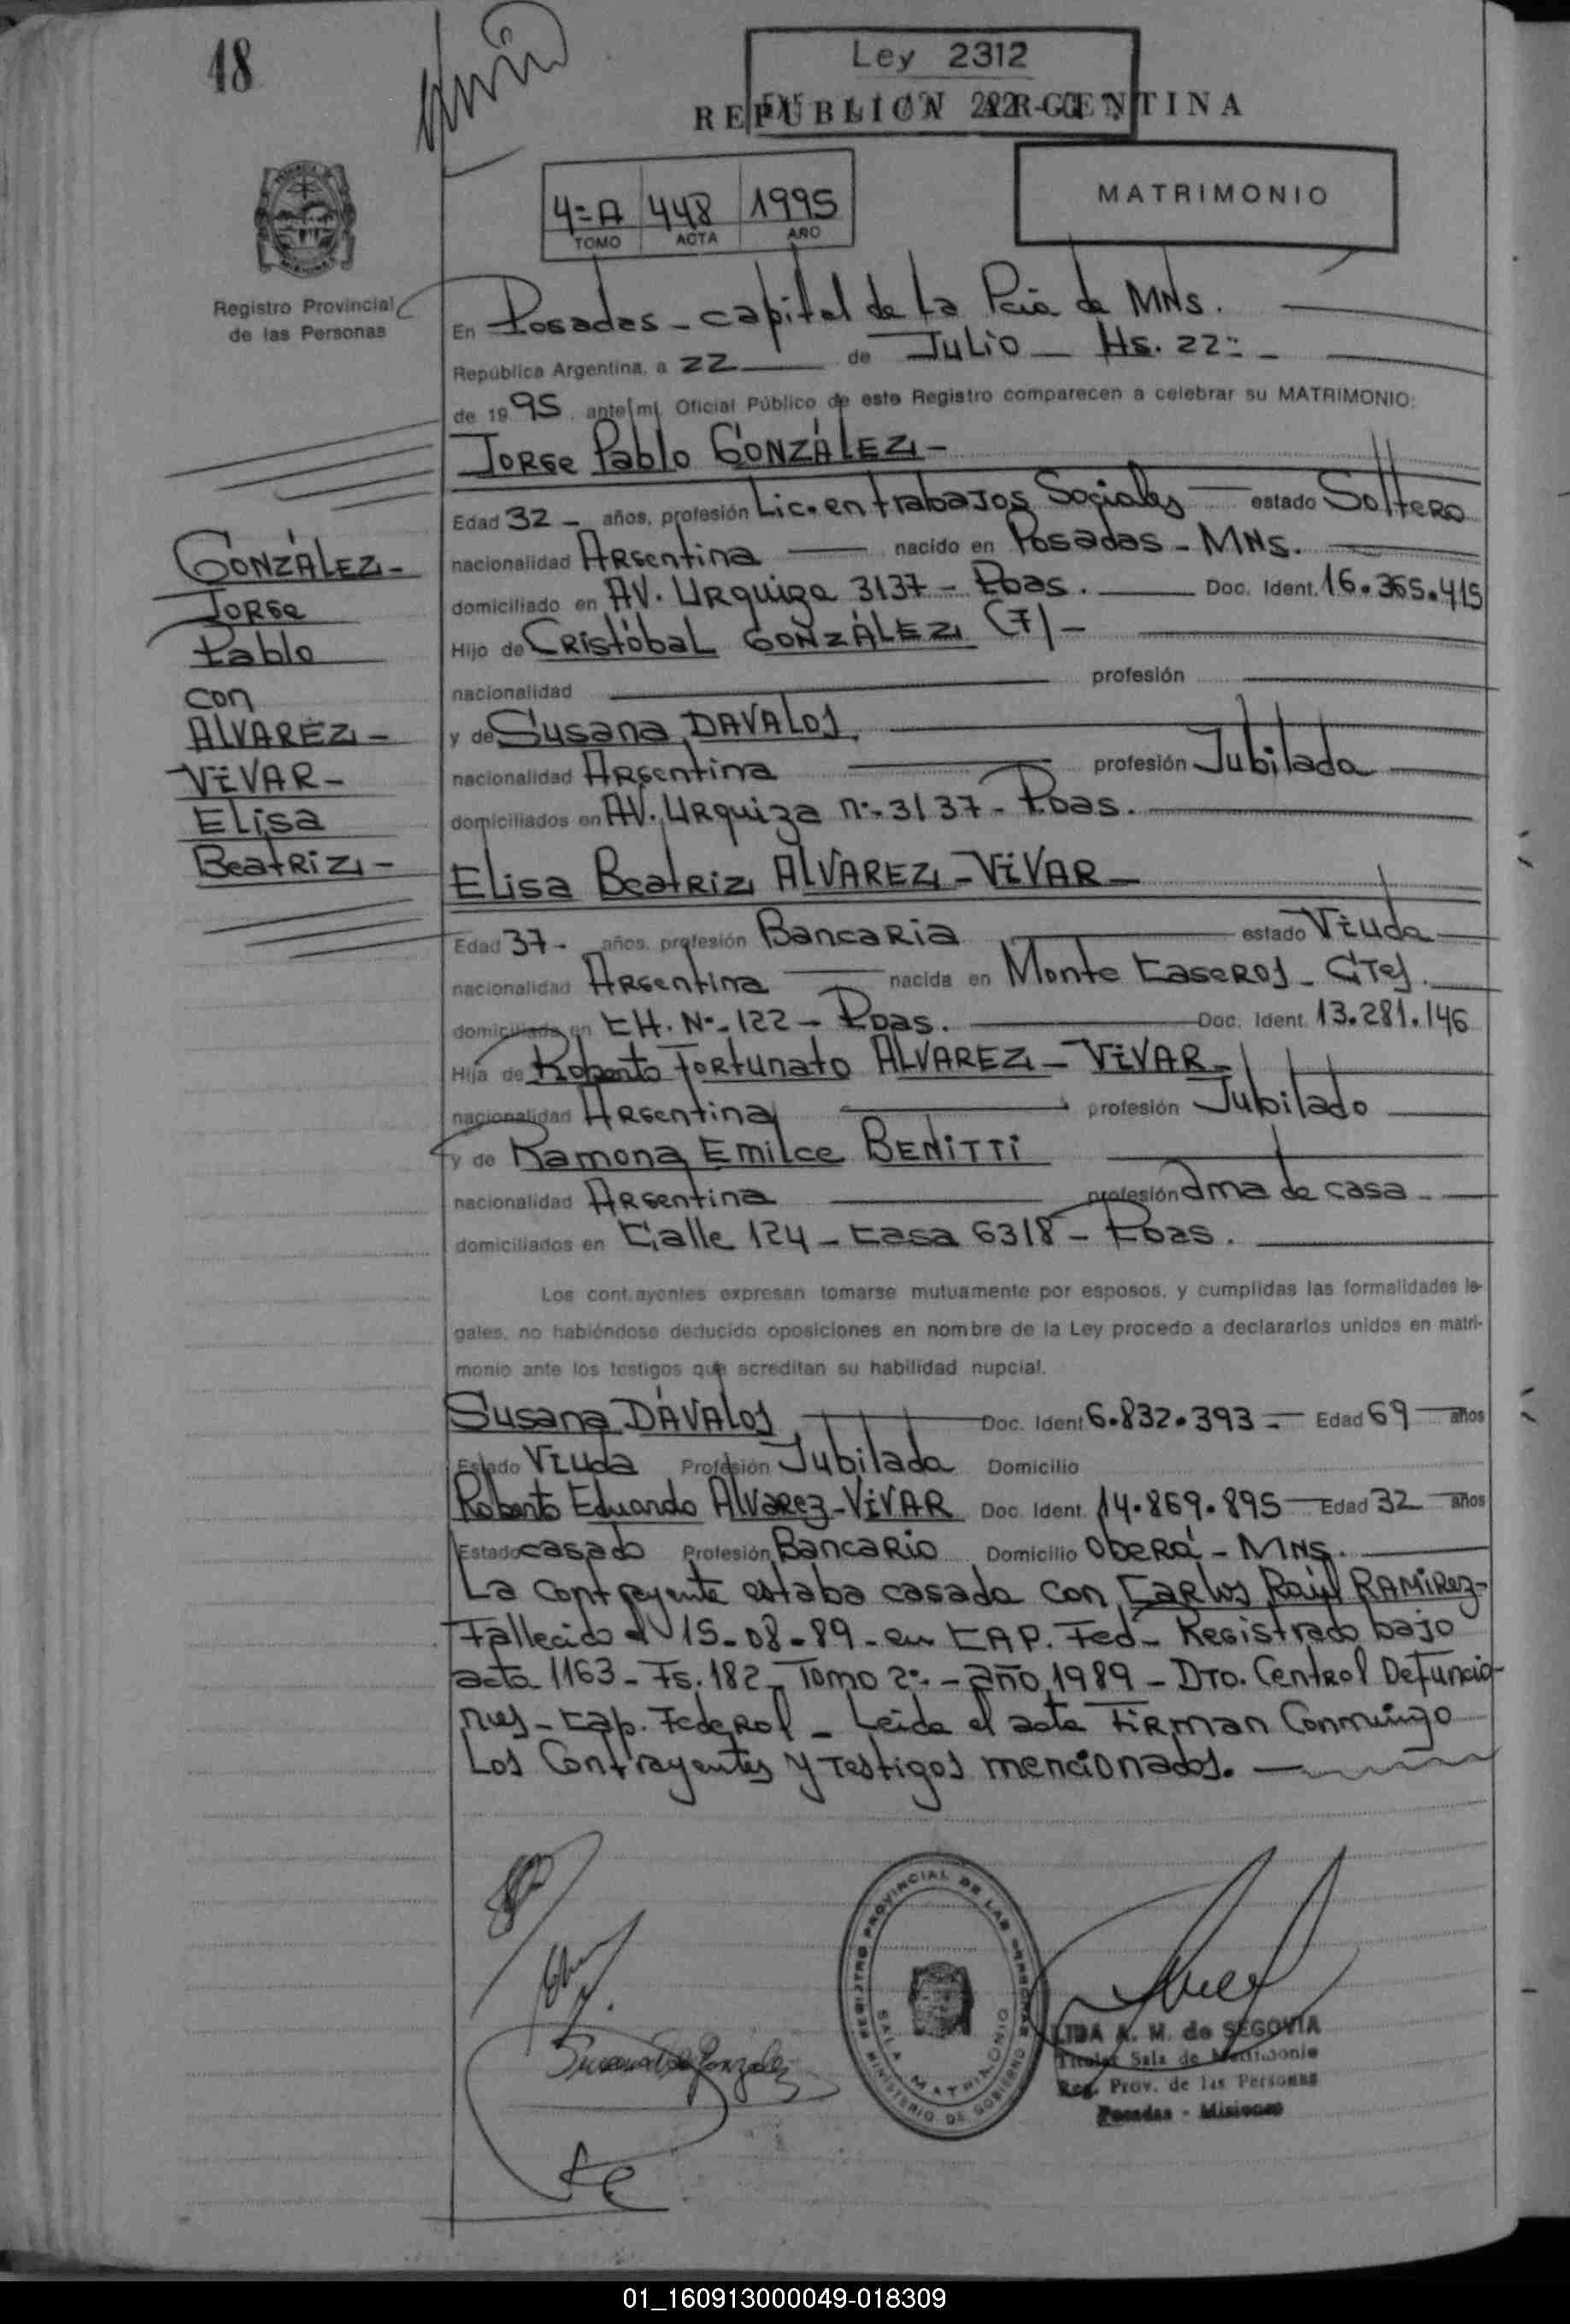 18
Ley 2312
REPUBLICA ARGENTINA
4º A 448 1995
TOMO ACTA AÑO
MATRIMONIO
Registro Provincial
de las Personas
En Posadas - capital de La Pcia de MNs.
República Argentina, a 22 de Julio - Hs. 22:-
de 1995 ante mí, Oficial Público de este Registro comparecen a celebrar su MATRIMONIO:
Jorge Pablo GONZÁLEZ -
Edad 32 - años, profesión Lic. en trabajos Sociales estado Soltero
nacionalidad Argentina nacido en Posadas - MNs.
domiciliado en AV. Urquiza 3137 - Pdas. Doc. Ident. 16.365.415
Hijo de Cristóbal GONZÁLEZ (F) -
nacionalidad profesión
y de Susana DAVALOS
nacionalidad Argentina profesión Jubilada
domiciliados en AV. Urquiza nº 3137 - Pdas.
GONZÁLEZ -
Jorge
Pablo
con
ALVAREZ -
VIVAR -
Elisa
Beatriz -
Elisa Beatriz ALVAREZ - VIVAR -
Edad 37 - años, profesión Bancaria estado Viuda
nacionalidad Argentina nacida en Monte Caseros - Ctes.
domiciliada en CH. Nº 122 - Pdas. Doc. Ident. 13.281.146
Hija de Roberto Fortunato ALVAREZ - VIVAR -
nacionalidad Argentina profesión Jubilado
y de Ramona Emilce BENITTI
nacionalidad Argentina profesión ama de casa -
domiciliados en Calle 124 - Casa 6318 - Pdas.
Los contrayentes expresan tomarse mutuamente por esposos, y cumplidas las formalidades le-
gales, no habiéndose deducido oposiciones en nombre de la Ley procedo a declararlos unidos en matri-
monio ante los testigos que acreditan su habilidad nupcial.
Susana DÁVALOS Doc. Ident 6.832.393 - Edad 69 años
Estado Viuda Profesión Jubilada Domicilio
Roberto Eduardo Alvarez - VIVAR Doc. Ident. 14.869.895 Edad 32 años
Estado casado Profesión Bancario Domicilio Oberá - MNs.
La contrayente estaba casada con Carlos Raúl RAMIREZ -
Fallecido el 15-08-89 - en CAP. Fed - Registrado bajo
acta 1163 - Fs. 182 - Tomo 2º - año 1989 - Dto. Central Defuncio-
nes - Cap. Federal - Leida el acta Firman Conmigo
Los Contrayentes y Testigos mencionados.
Susana D de Gonzalez
REGISTRO PROVINCIAL DE LAS PERSONAS
SALA MATRIMONIO
MINISTERIO DE GOBIERNO
LIDA A. M. de SEGOVIA
Titular Sala de Matrimonio
Reg. Prov. de las Personas
Posadas - Misiones
01_160913000049-018309